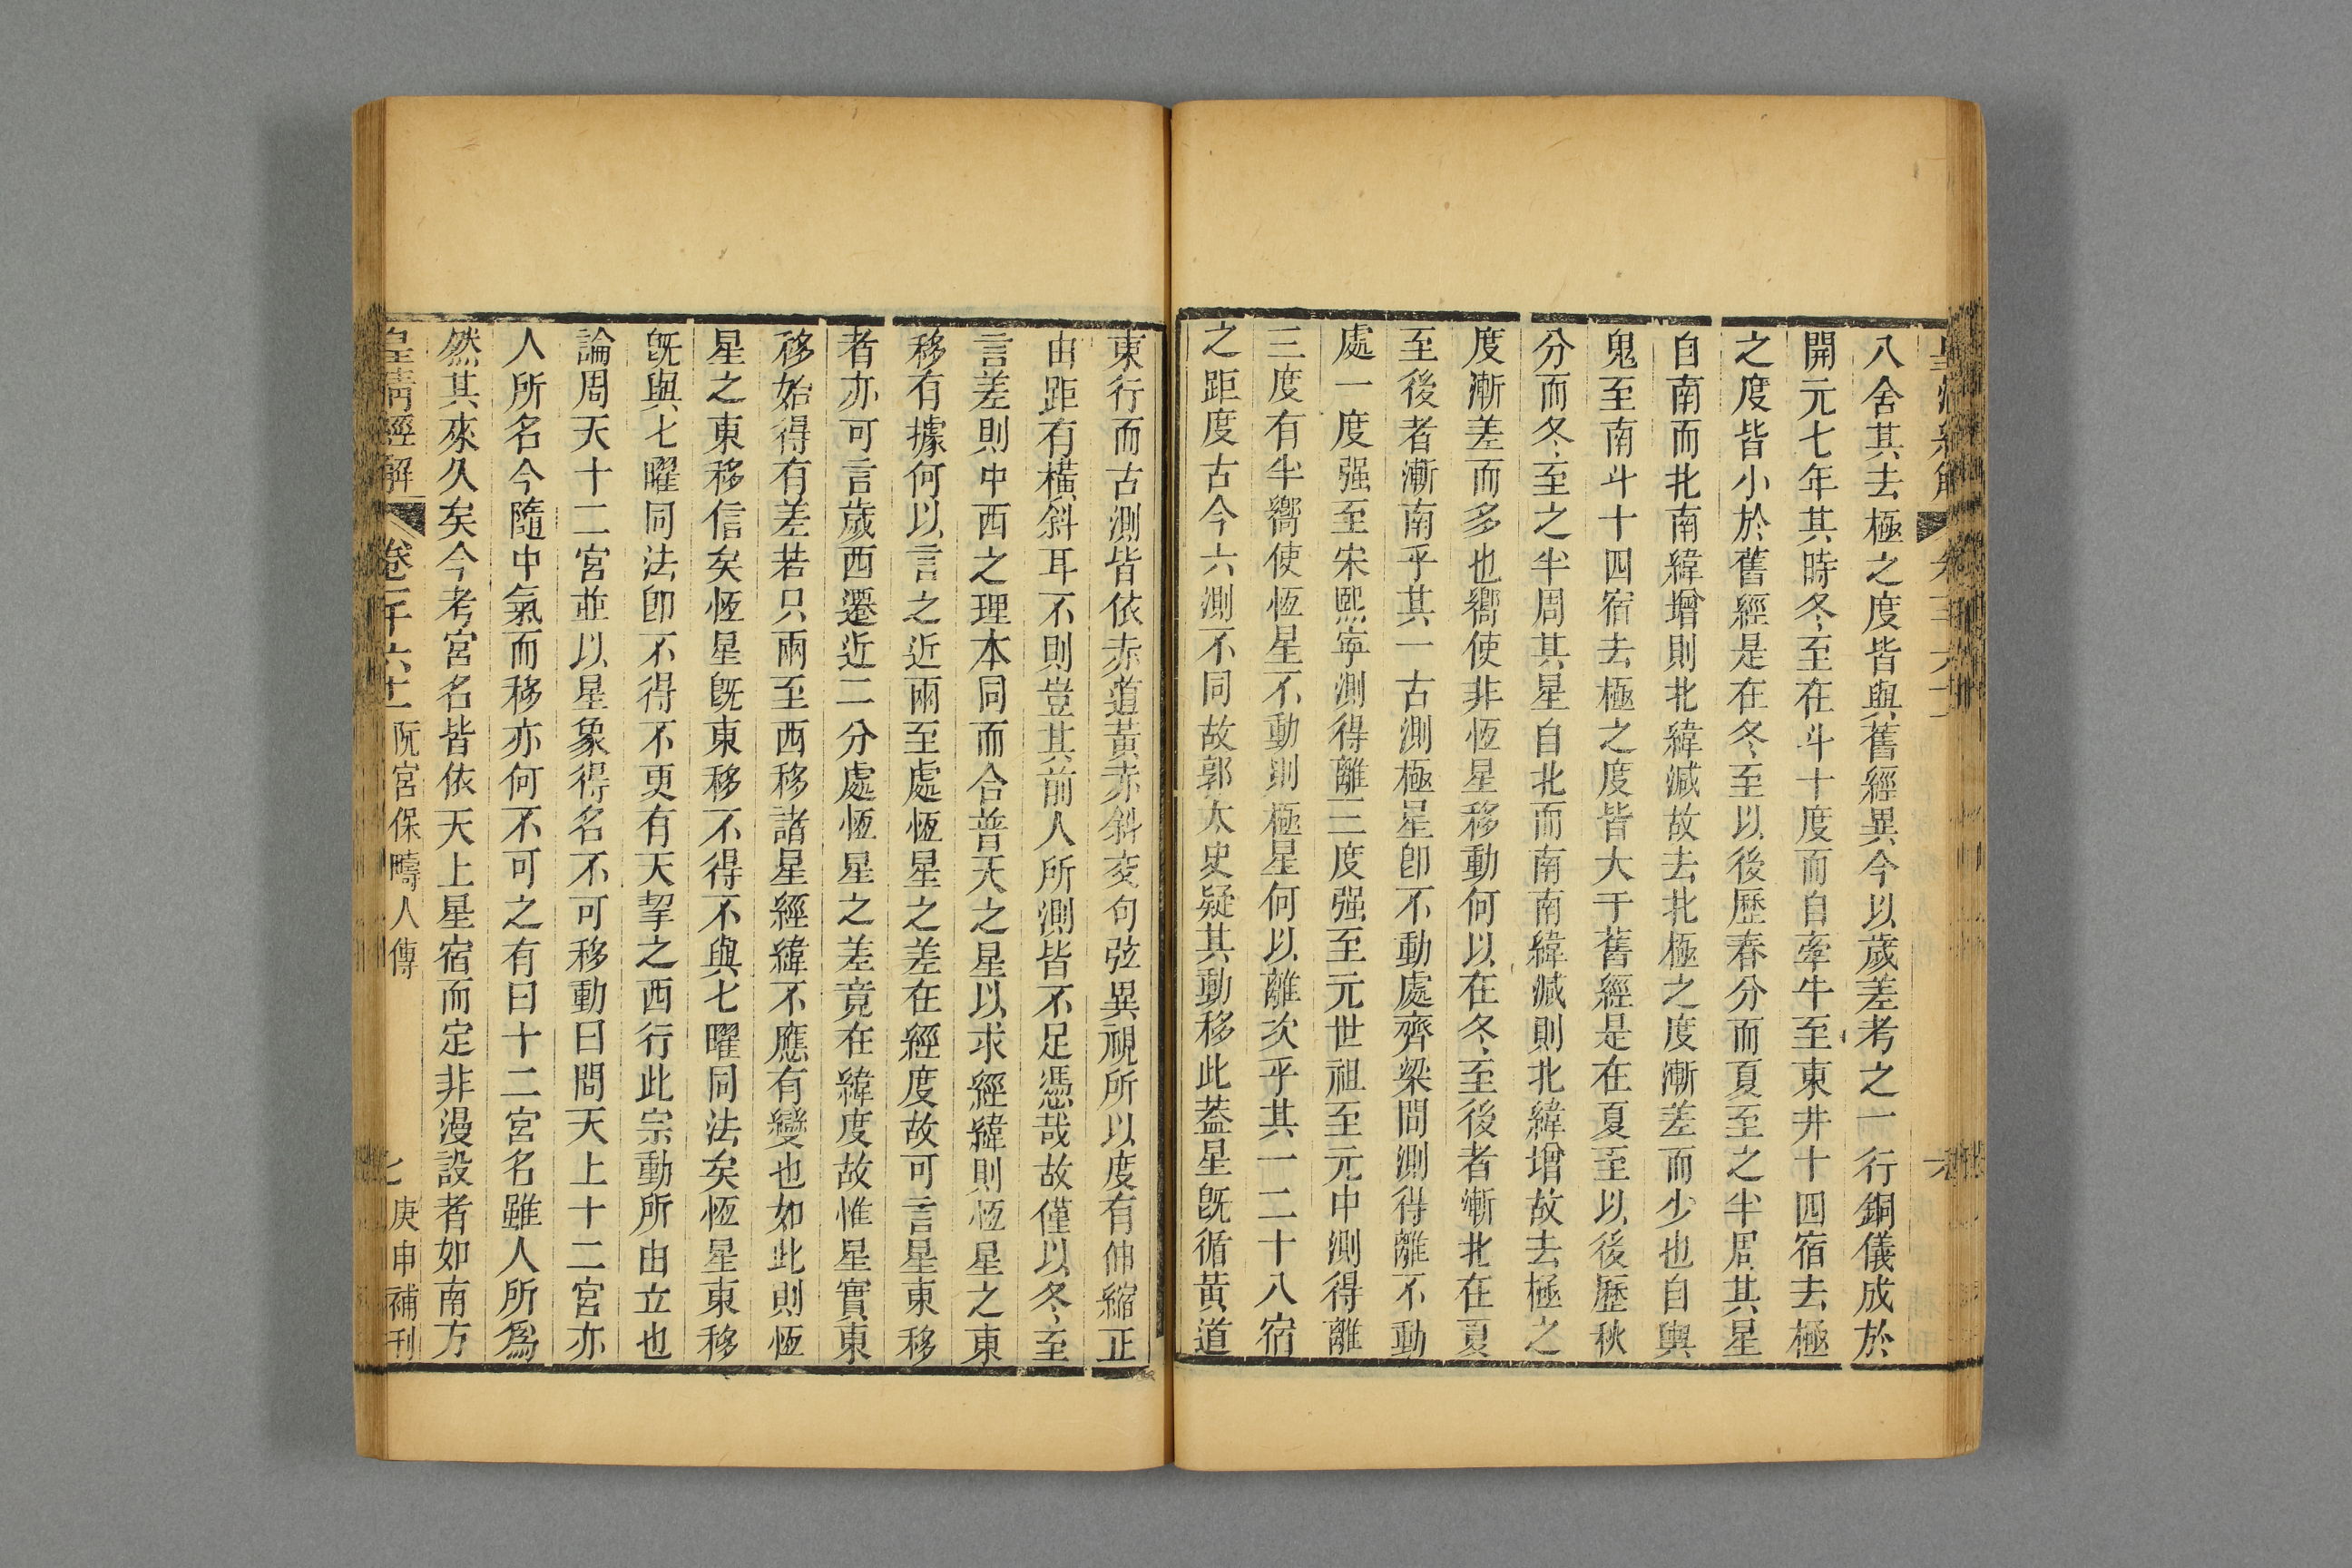 八舍其去極之度皆與舊經異今以歲差考之一行銅儀成於
開元七年其時冬至在斗十度而自牽牛至東井十四宿去極
之度皆小於舊經是在冬至以後歷春分而夏至之半周其星
自南而北南緯增則北緯減故去北極之度漸差而少也自輿
鬼至南斗十四宿去極之度皆大于舊經是在夏至以後歷秋
分而冬至之半周其星自北而南南緯減則北緯增故去極之
度漸差而多也嚮使非恆星移動何以在冬至後者漸北在夏
至後者漸南乎其一古測極星卽不動處齊梁間測得離不動
處一度强至宋熙寧測得離三度强至元世祖至元中測得離
三度有半嚮使恆星不動則極星何以離次乎其一二十八宿
之距度古今六測不同故郭太史疑其動移此葢星旣循黃道
東行而古測皆依赤道黃赤斜交句弦異視所以度有伸縮正
由距有橫斜耳不則豈其前人所測皆不足憑哉故僅以冬至
言差則中西之理本同而合普天之星以求經緯則恆星之東
移有據何以言之近兩至處恆星之差在經度故可言星東移
者亦可言歲西遷近二分處恆星之差竟在緯度故惟星實東
移始得有差若只兩至西移諸星經緯不應有變也如此則恆
星之東移信矣恆星旣東移不得不與七曜同法矣恆星東移
旣與七曜同法卽不得不更有天挈之西行此宗動所由立也
論周天十二宮並以星象得名不可移動曰問天上十二宮亦
人所名今隨中氣而移亦何不可之有曰十二宮名雖人所爲
然其來久矣今考宮名皆依天上星宿而定非漫設者如南方
皇淸經解 卷一千六十一 阮宮保疇人傳 七 庚申補刊